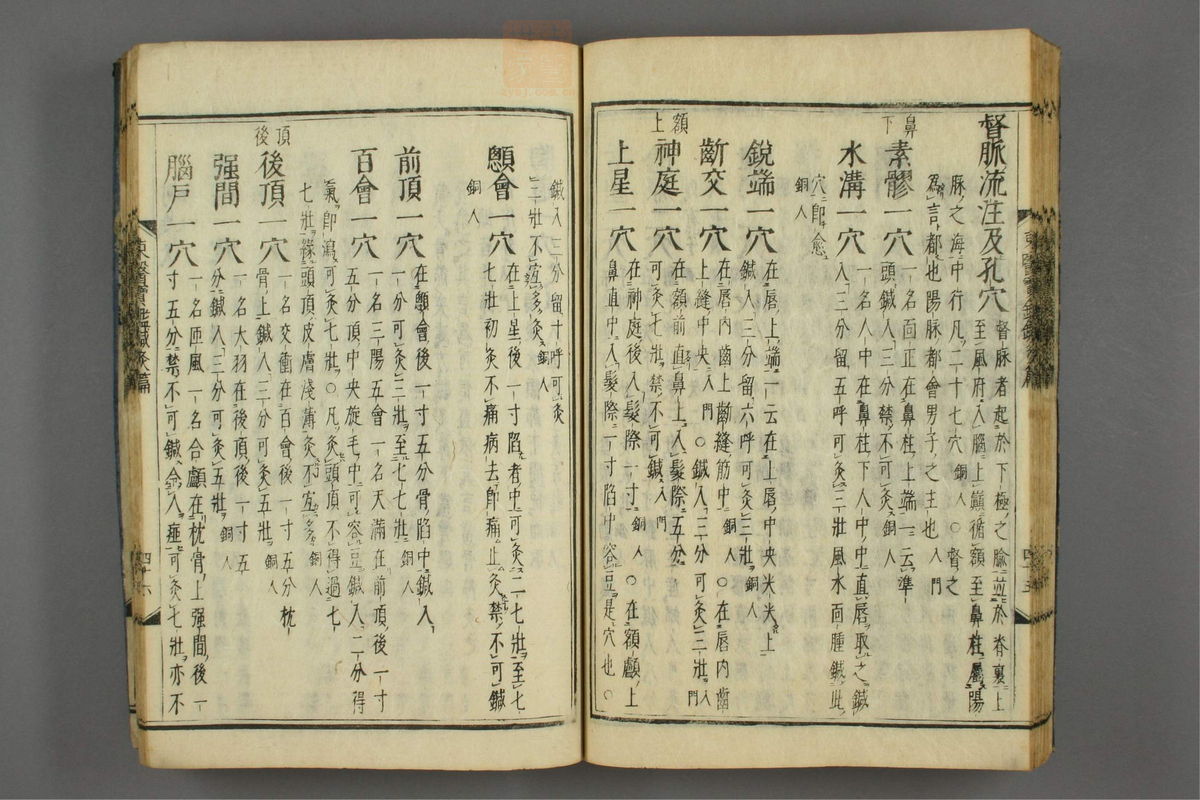 督脈流注及孔穴
督脉者起於下極之腧並於脊裏上
至風府入腦上巓循額至鼻柱屬陽
脉之海中行凡二十七穴銅人○督之
爲言都也陽脉都會男子之主也入門
鼻下
素髎一穴
一名面正在鼻柱上端一云準
頭鍼入三分禁不可灸銅人
水溝一穴
一名人中在鼻柱下人中直唇取之鍼
入三分留五呼可灸三壯風水面腫鍼此
穴即愈
銅人
銳端一穴
在唇上端一云在上唇中央尖尖上
鍼入三分留六呼可灸三壯銅人
齗交一穴
在唇内齒上齗縫筋中銅人○在唇内齒
上縫中央入門○鍼入三分可灸三壯入門
額上
神庭一穴
在額前直鼻上入髮際五分
可灸七壯禁不可鍼入門
上星一穴
在神庭後入髮際一寸銅人○在額顱上
鼻直中入髮際一寸陷中容豆是穴也○
鍼入三分留十呼可灸
三壯不宜多灸銅人
顖會一穴
在上星後一寸陷者中可灸二七壯至七
七壯初灸不痛病去即痛止灸禁不可鍼
銅人
前頂一穴
在顖會後一寸五分骨陷中鍼入
一分可灸三壯至七七壯銅人
百會一穴
一名三陽五會一名天滿在前頂後一寸
五分頂中央旋毛中可容豆鍼入二分得
氣即瀉可灸七壯○凡灸頭頂不得過七
七壯緣頭頂皮膚淺薄灸不宜多銅人
頂後
後頂一穴
一名交衝在百會後一寸五分枕
骨上鍼入三分可灸五壯銅人
强間一穴
一名大羽在後頂後一寸五
分鍼入三分可灸五壯銅人
腦戶一穴
一名匝風一名合顱在枕骨上强間後一
寸五分禁不可鍼令人瘂可灸七壯亦不
東醫寶鑑鍼灸篇
四十六